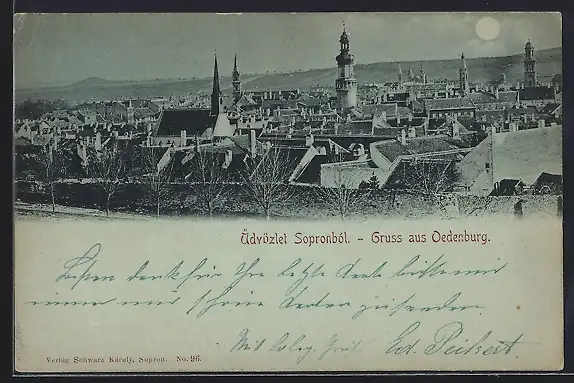 Üdvözlet Sopronból. - Gruss aus Oedenburg.
Besten dank für Ihre letzte Carte bitte mir
immer nur schöne Carten zu senden.
Mit Gruß
Ed. Peikert
Verlag Schwarz Károly, Sopron. No. 96.